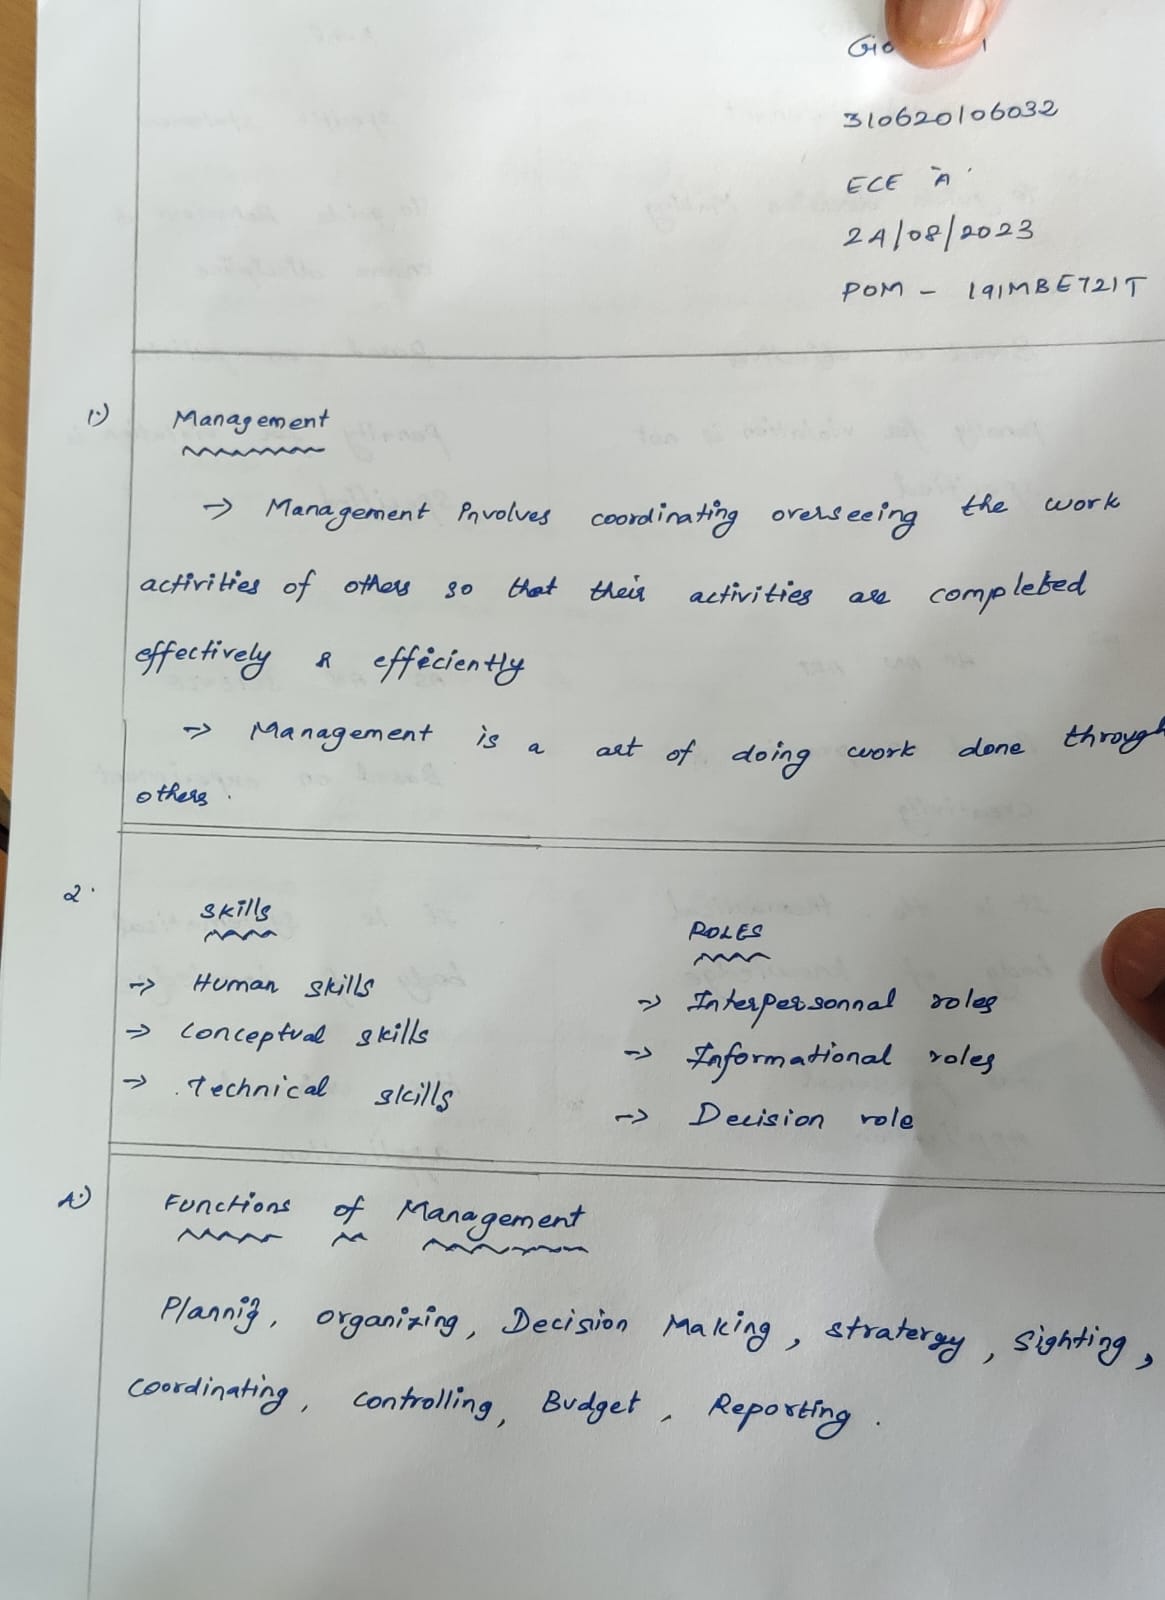 310620106032
ECE "A"
24/08/2023
POM - 191MBE721T
1.) Management
→ Management involves coordinating overseeing the work
activities of others so that their activities are completed
effectively & efficiently
→ Management is a art of doing work done through
others.
2. Skills
→ Human skills
→ Conceptual skills
→ Technical skills
ROLES
→ Interpersonnal roles
→ Informational roles
→ Decision role
4.) Functions of Management
Plannig, organizing, Decision Making, stratergy, Sighting,
Coordinating, controlling, Budget, Reporting.